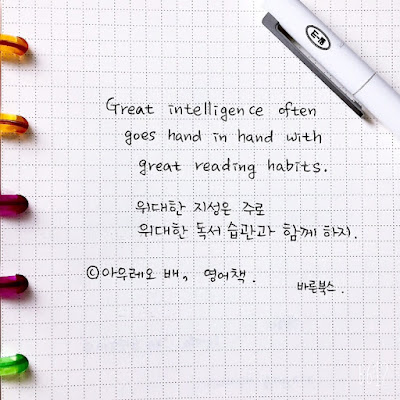 Great intelligence often
goes hand in hand with
great reading habits.
위대한 지성은 주로
위대한 독서 습관과 함께 하지.
©아우레오 배, 영어책.
바른북스.